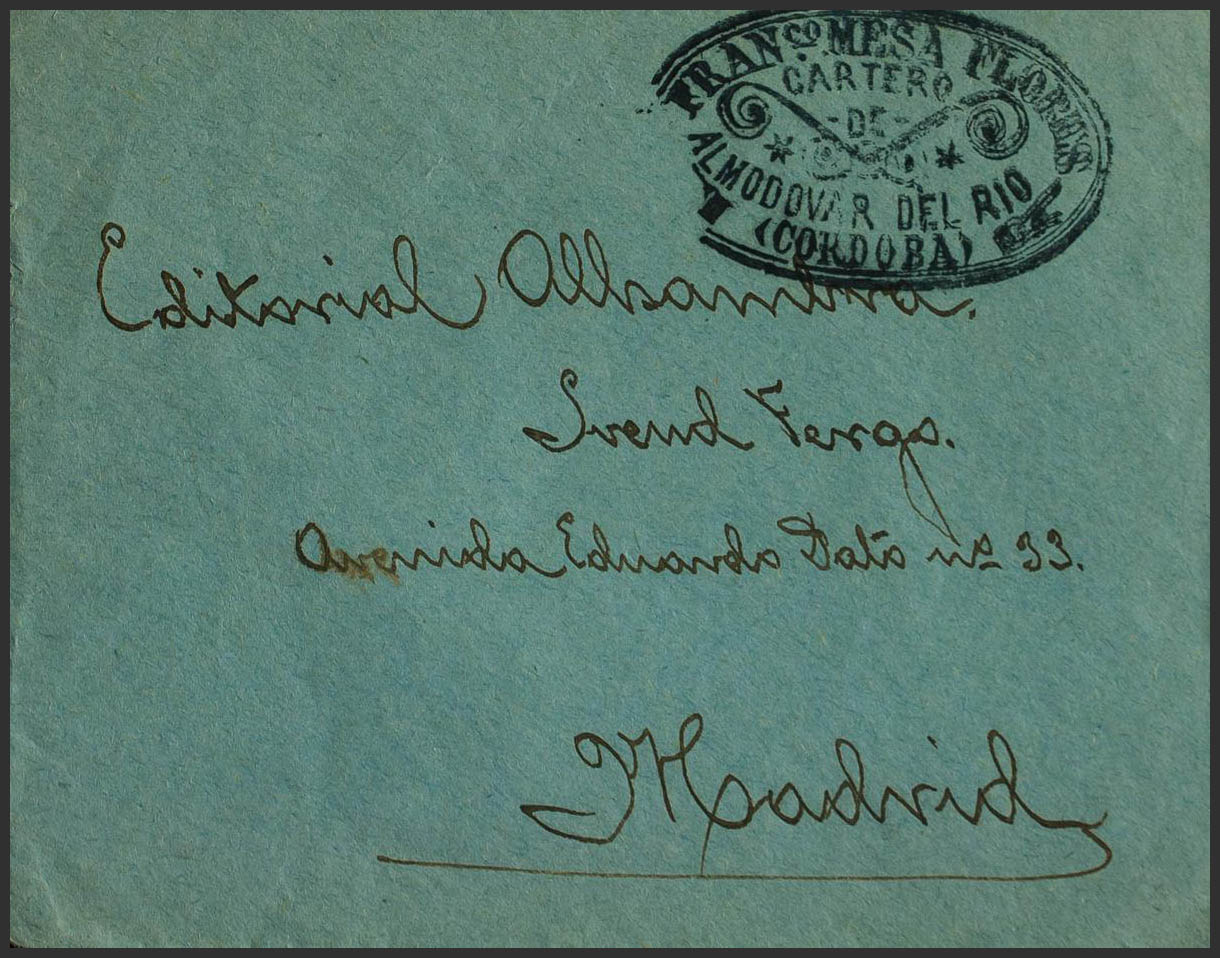 FRANCO. MESA FLORES
CARTERO
-DE-
ALMODOVAR DEL RIO
(CORDOBA)
Editorial Alhambra.
Svend Fergo.
Avenida Eduardo Dato nº 33.
Madrid